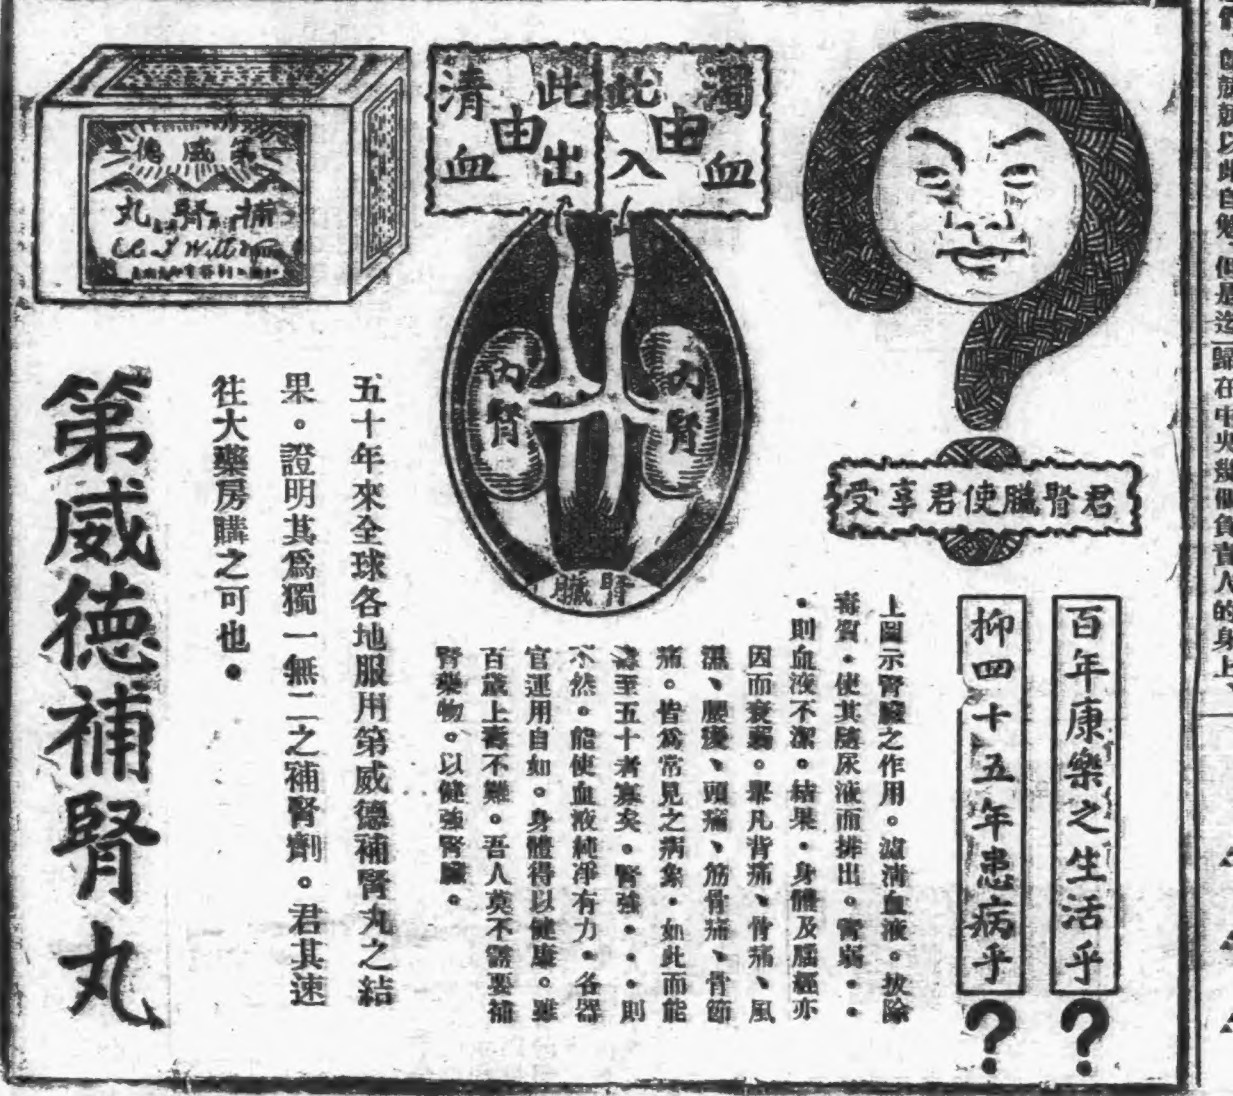 君腎臟使君享受
百年康樂之生活乎?
抑四十五年患病乎?
濁血
由
此入
此出
由
清血
內腎
內腎
腎臟
上圖示腎臟之作用。濾清血液。拔除
毒質.使其隨尿液而排出。腎弱..
.則血液不潔。結果.身體及腦經亦
因而衰弱。舉凡背痛、骨痛、風
濕、腰痠、頭痛、筋骨痛、骨節
痛。皆爲常見之病象.如此而能
壽至五十者寡矣。腎強...則
不然。能使血液純淨有力.各器
官運用自如。身體得以健康。雖
百歲上壽不難。吾人莫不需要補
腎藥物。以健強腎臟。
第威德
補腎丸
五十年來全球各地服用第威德補腎丸之結
果。證明其爲獨一無二之補腎劑。君其速
往大藥房購之可也.
第威德補腎丸